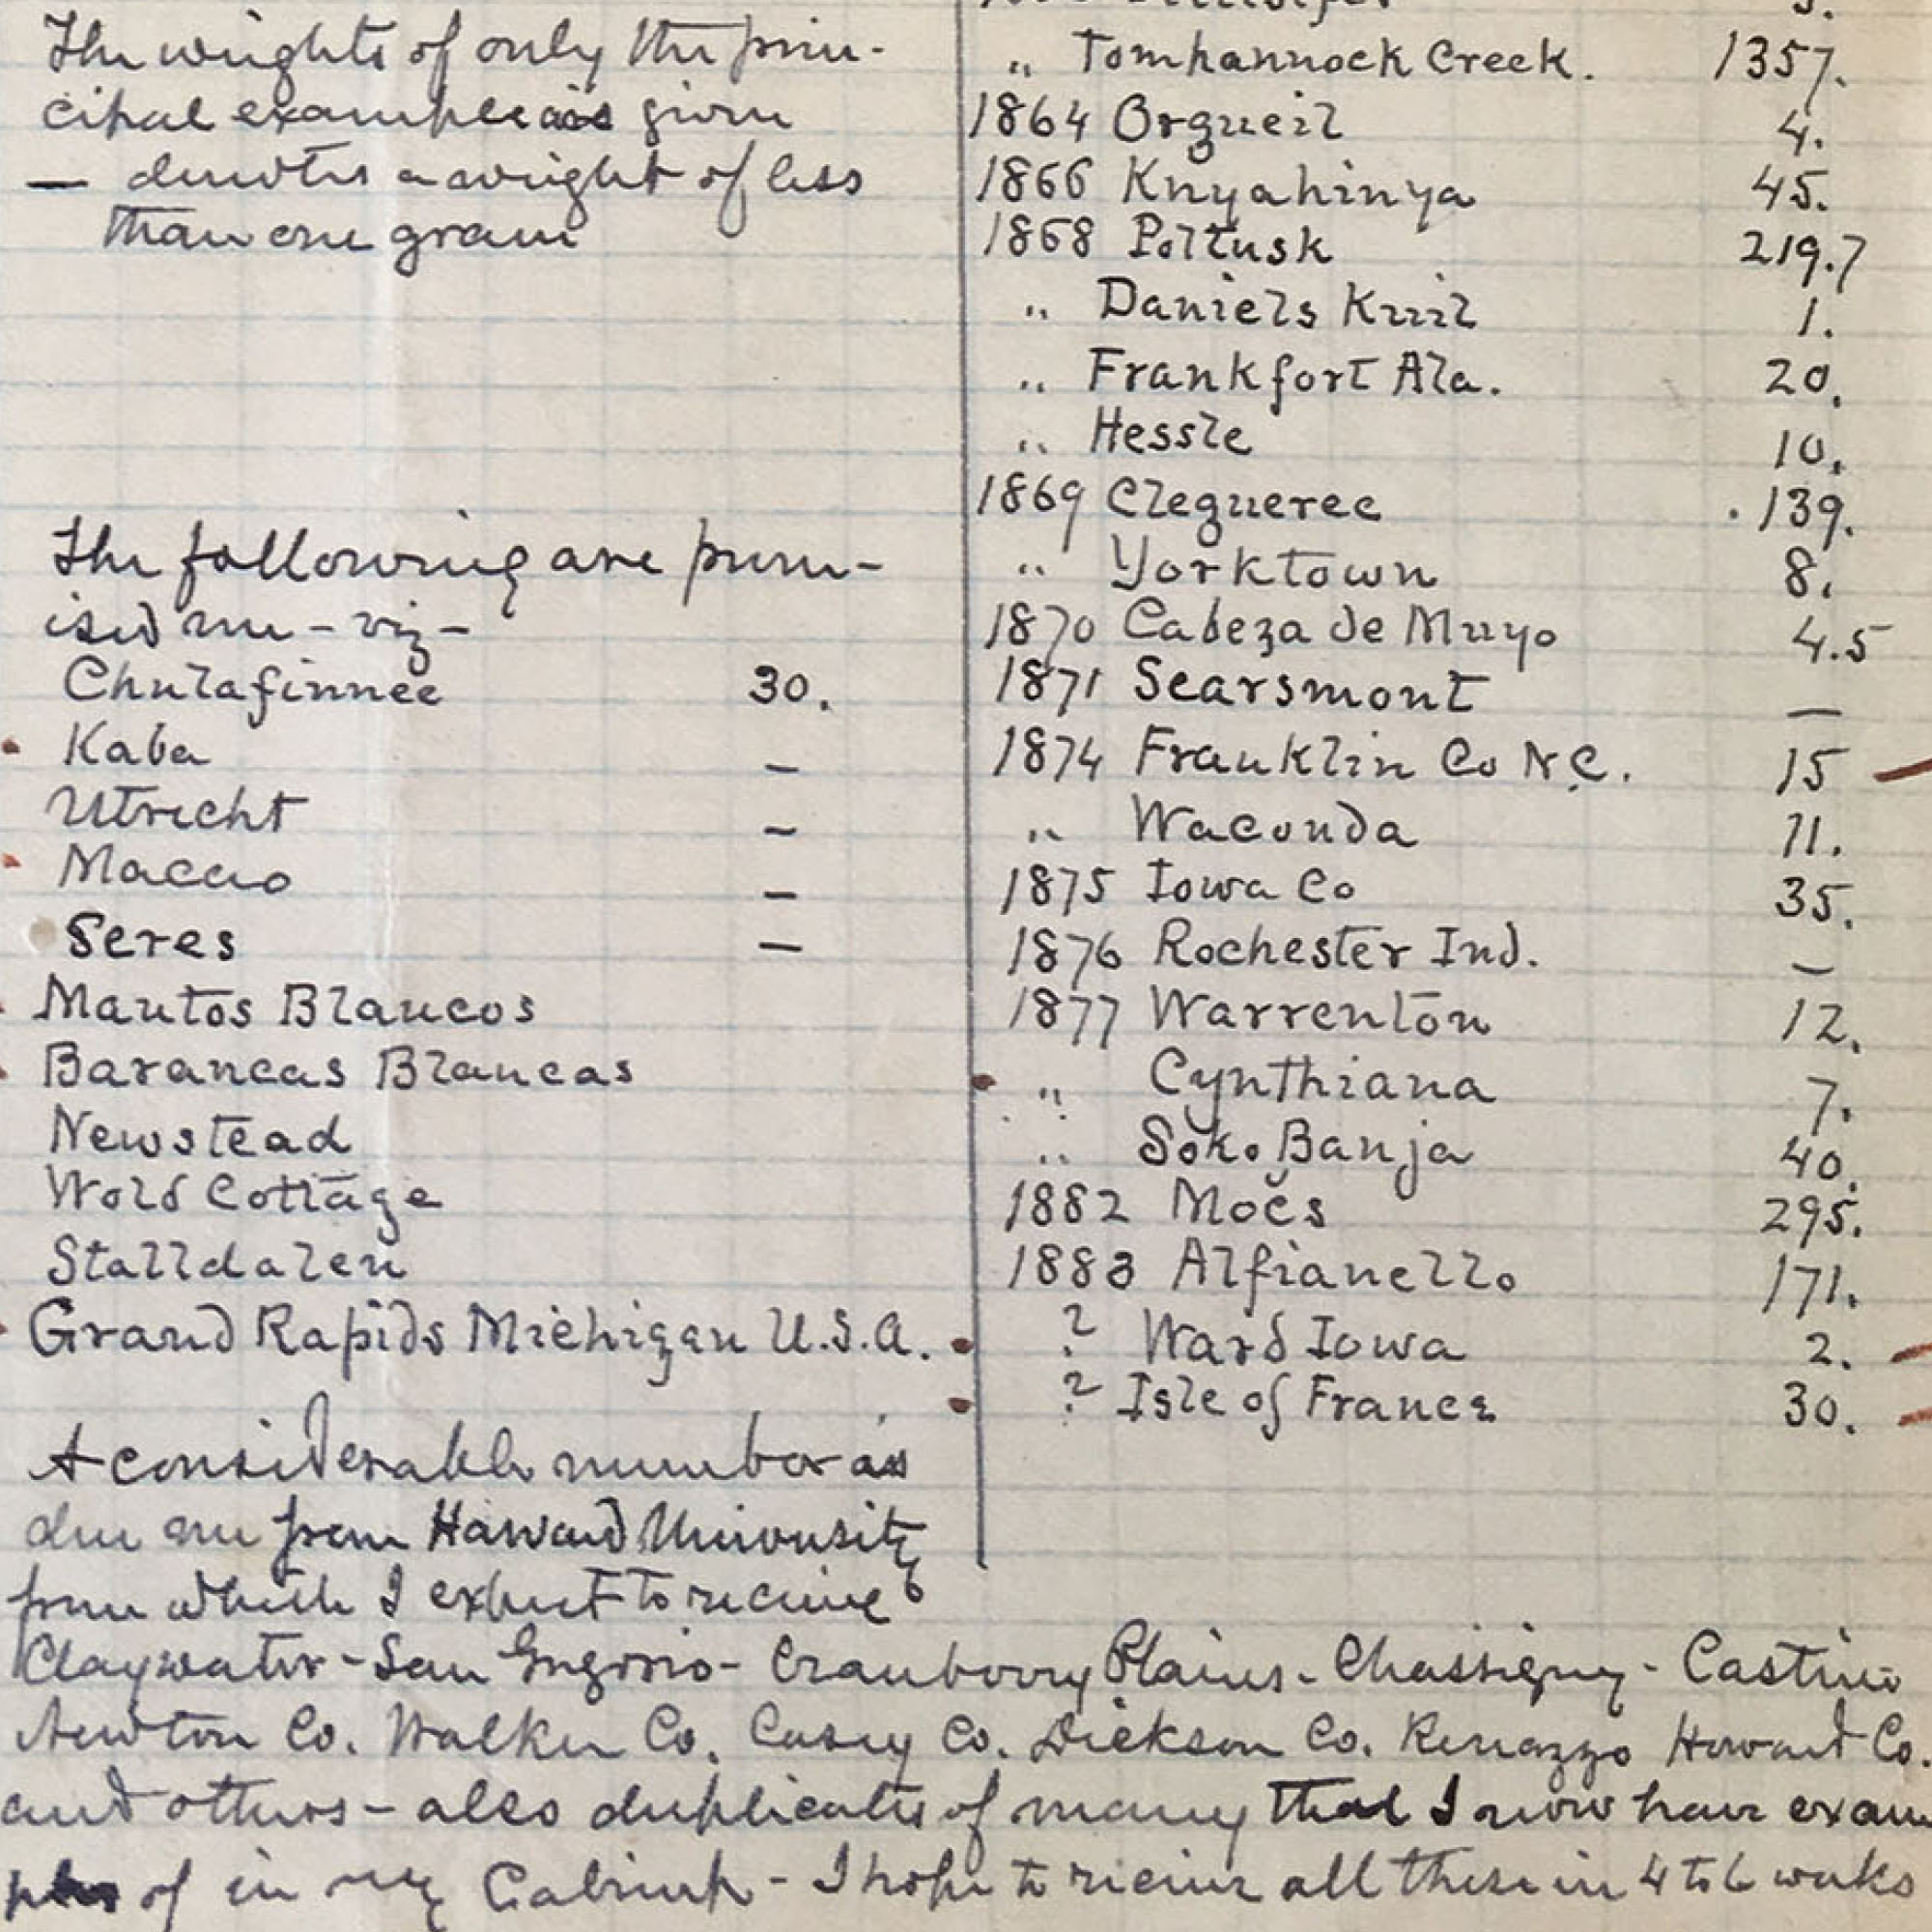 The weights of only the prin-
cipal examples are given
— denotes a weight of less
than one gram
The following are prom-
ised me - viz -
Chulafinnee 30.
Kaba —
Utrecht —
Macao —
Seres —
Mantos Blancos
Barancas Blancas
Newstead
Wold Cottage
Stalldalen
Grand Rapids Michigan U.S.A.
A considerable number are
due me from Harvard University
from which I expect to receive
„ Tomhannock Creek. 1357.
1864 Orgueil 4.
1866 Knyahinya 45.
1868 Poltusk 219.7
„ Daniels Kuil 1.
„ Frankfort Ala. 20.
„ Hessle 10.
1869 Cleguerec 139.
„ Yorktown 8.
1870 Cabeza de Muyo 4.5
1871 Searsmont —
1874 Franklin Co N.C. 15
„ Waconda 11.
1875 Iowa Co 35.
1876 Rochester Ind. —
1877 Warrenton 12.
„ Cynthiana 7.
„ Soko Banja 40.
1882 Mocs 295.
1883 Alfianello 171.
? Ward Iowa 2.
? Isle of France 30.
Claywater - San Gregorio - Cranberry Plains - Chassigny - Castine
Newton Co. Walker Co. Casey Co. Dickson Co. Renazzo Howard Co.
and others - also duplicates of many that I now have exam
ples of in my Cabinet - I hope to receive all these in 4 to 6 weeks